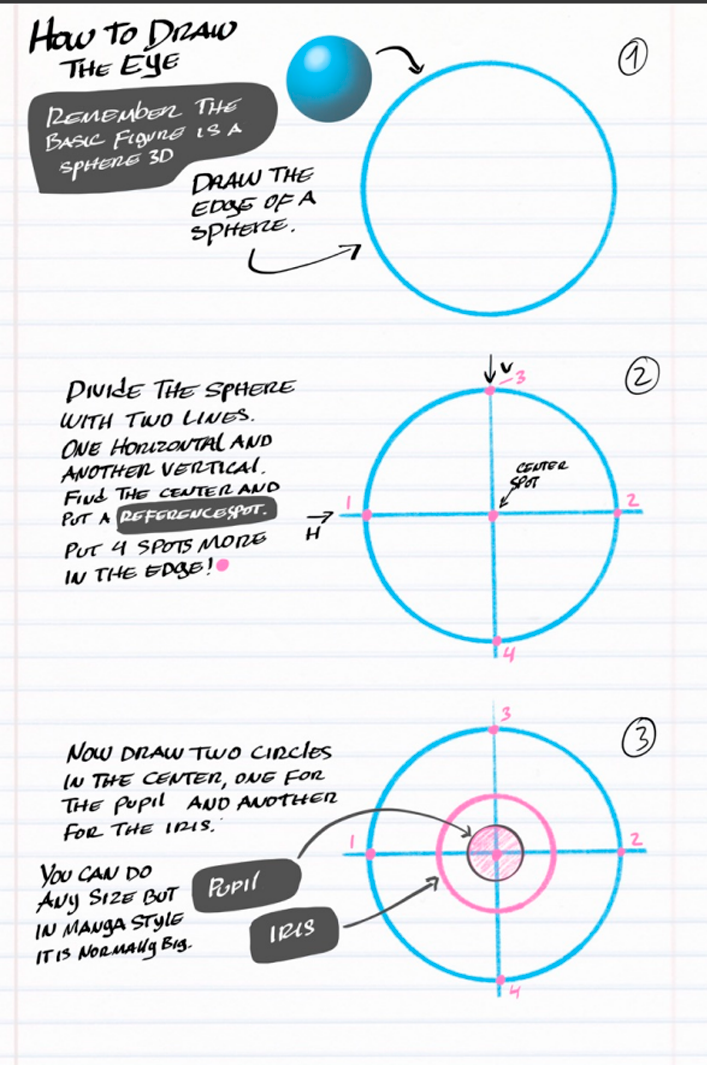 How to Draw
The Eye
Remember the
Basic Figure is a
sphere 3D
Draw the
edge of a
sphere.
1
Divide the sphere
with two lines.
One horizontal and
another vertical.
Find the center and
put a reference spot.
Put 4 spots more
in the edge!
2
V
3
center
spot
1
2
H
4
Now draw two circles
in the center, one for
the pupil and another
for the iris.
3
3
1
2
You can do
any size but
in manga style
it is normally big.
Pupil
Iris
4